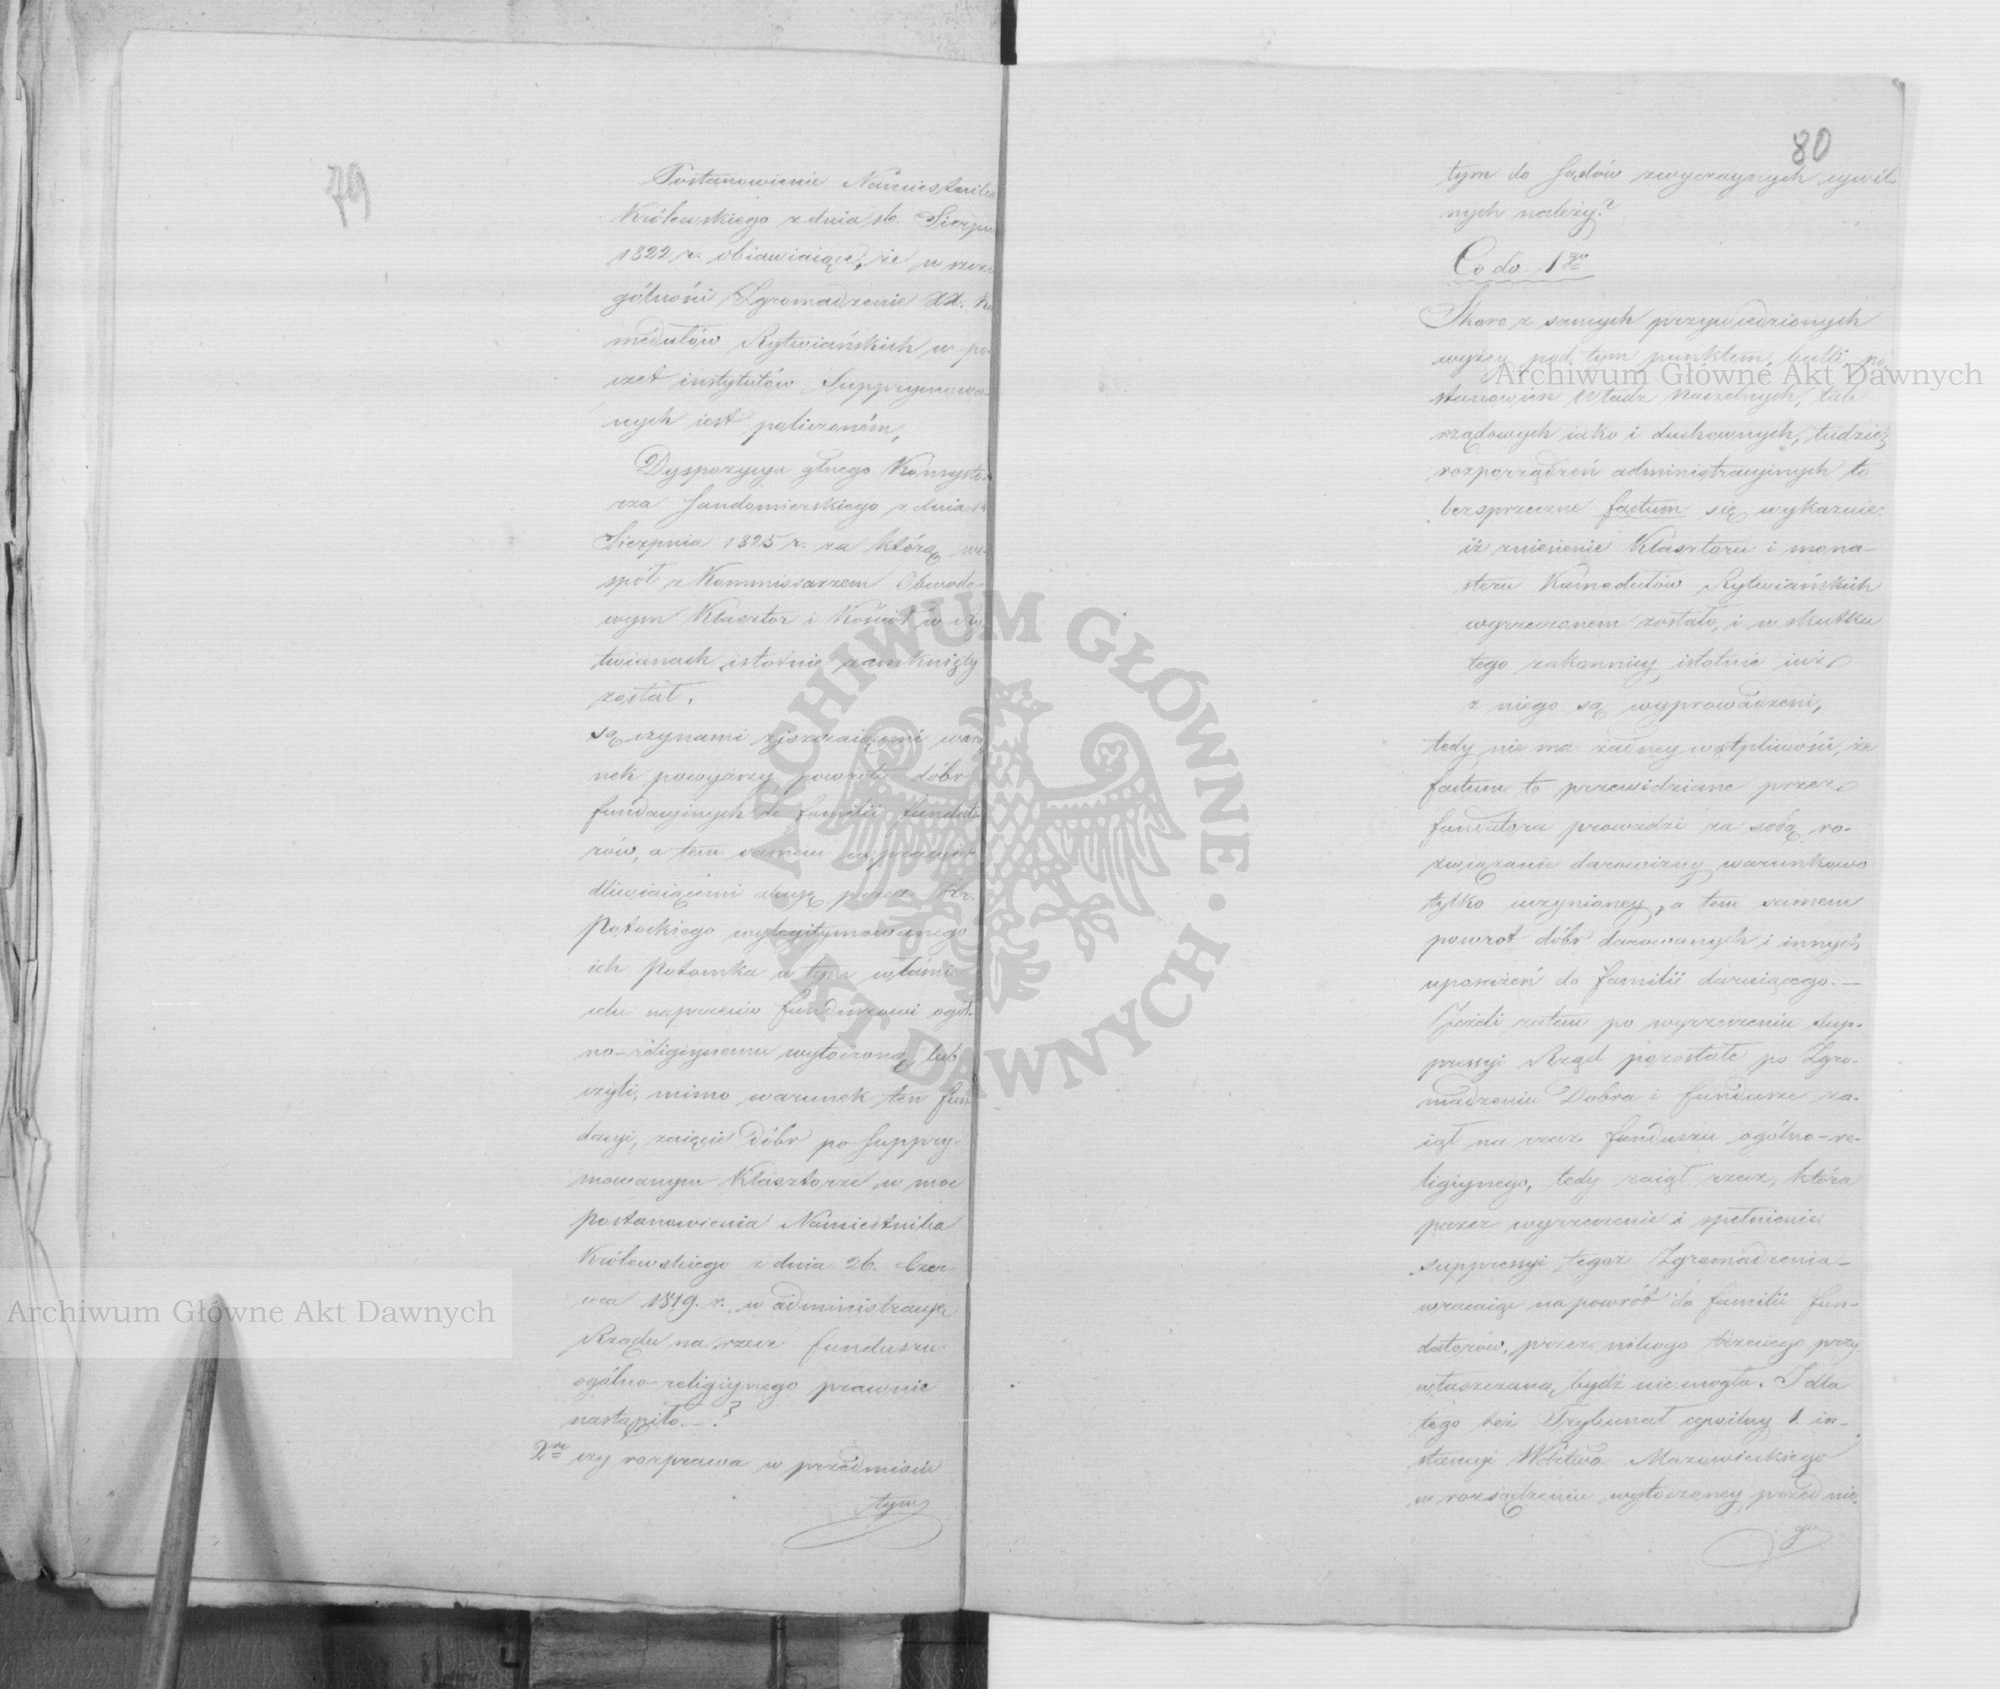 79
Postanowienie Namiestnika
Królewskiego z dnia 16 Sierpn
1822 r. obiawiaiące, że w szcze
gólności Zgromadzenie XX. Ka
medułów Rytwiańskich w po-
czet instytutów Supprymowa-
nych iest policzoném,
Dyspozycya głnego Konsysto-
rza Sandomierskiego z dnia 14
Sierpnia 1825 r. za którą we-
spół z Kommissarzem Obwodo-
wym Klasztor i Kościół w Ry
twianach istotnie zamknięty
został,
są czynami ziszczaiącemi waru
nek powyższy powrotu dóbr
fundacyinych do familii fundato
rów, a tem samem usprawie
dliwiaiącemi akcyę przez Hr.
Potockiego wylegitymowanego
ich Potomka w tym właśnie
celu naprzeciw funduszowi ogól-
no-religiynemu wytoczoną, lub
czyli, mimo warunek ten fun
dacyi, zaięcie dóbr po Suppry-
mowanym Klasztorze w moc
postanowienia Namiestnika
Królewskiego z dnia 26. Czer-
wca 1819. r. w administracyą
Rządu na rzecz funduszu
ogólno-religiynego prawnie
nastąpiło.—?
2re czy rozprawa w przedmiocie
tym
80
tym do Sądów zwyczaynych cywil-
nych należy?
Co do 1go
Skoro z samych przywiedzionych
wyżey pod tym punktem bulli, po
stanowień Władz Naczelnych, tak
rządowych iako i duchownych, tudzież
rozporządzeń administracyinych to
bezsprzeczne factum się wykazuie:
iż zniesienie Klasztoru i mona-
steru Kamedułów Rytwiańskich
wyrzeczonem zostało, i w skutku
tego zakonnicy istotnie iuż
z niego są wyprowadzeni,
tedy nie ma żadney wątpliwości, że
factum to przewidziane przez
fundatora prowadzi za sobą ro-
związanie darowizny warunkowo
tylko uczynioney, a tem samem
powrot dóbr darowanych i innych
uposażeń do familii daruiącego.—
Jeżeli zatem po wyrzeczeniu Sup-
pressyi Rząd pozostałe po Zgro-
madzeniu Dobra i fundusze za-
iął na rzecz funduszu ogólno-re-
ligiynego, tedy zaiął rzecz, która
przez wyrzeczenie i spełnienie
suppressyi tegoż Zgromadzenia
wracaiąc na powrót do familii fun-
datorów, przez nikogo trzeciego przy
właszczaną bydź nie mogła. I dla
tego też Trybunał cywilny 1. in-
stancyi Wdztwa Mazowieckiego
w rozsądzeniu wytoczoney przed nie-
go
Archiwum Główne Akt Dawnych
Archiwum Główne Akt Dawnych
ARCHIWUM GŁÓWNE AKT DAWNYCH